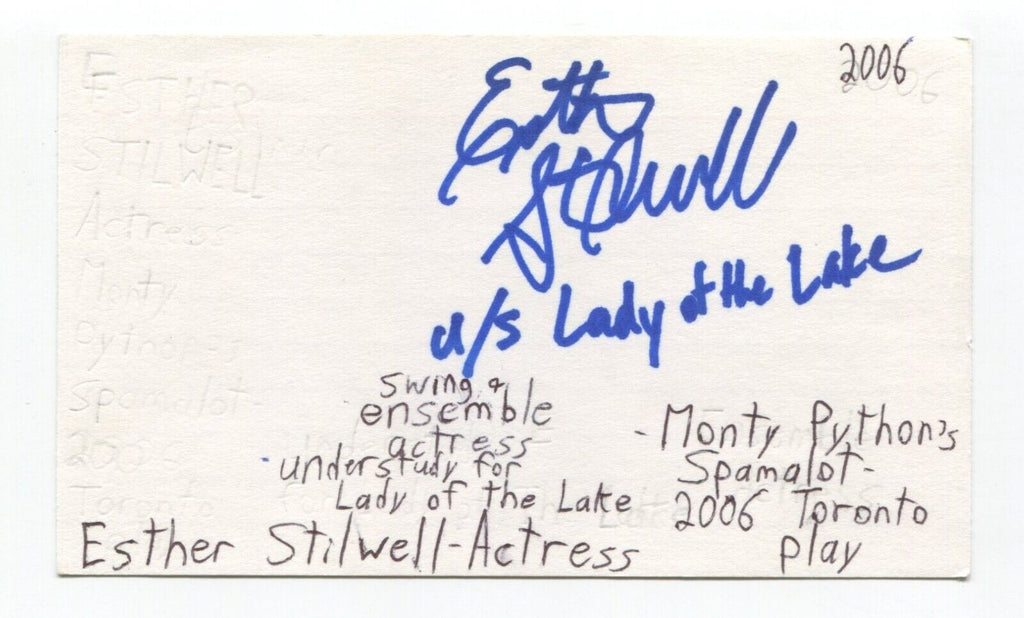 2006
Esther
Stilwell
u/s Lady of the Lake
swing &
ensemble
actress
- understudy for
Lady of the Lake
- Monty Python's
Spamalot-
2006 Toronto
play
Esther Stilwell-Actress
ESTHER
STILWELL
Actress
Monty
Spamalot-
Toronto